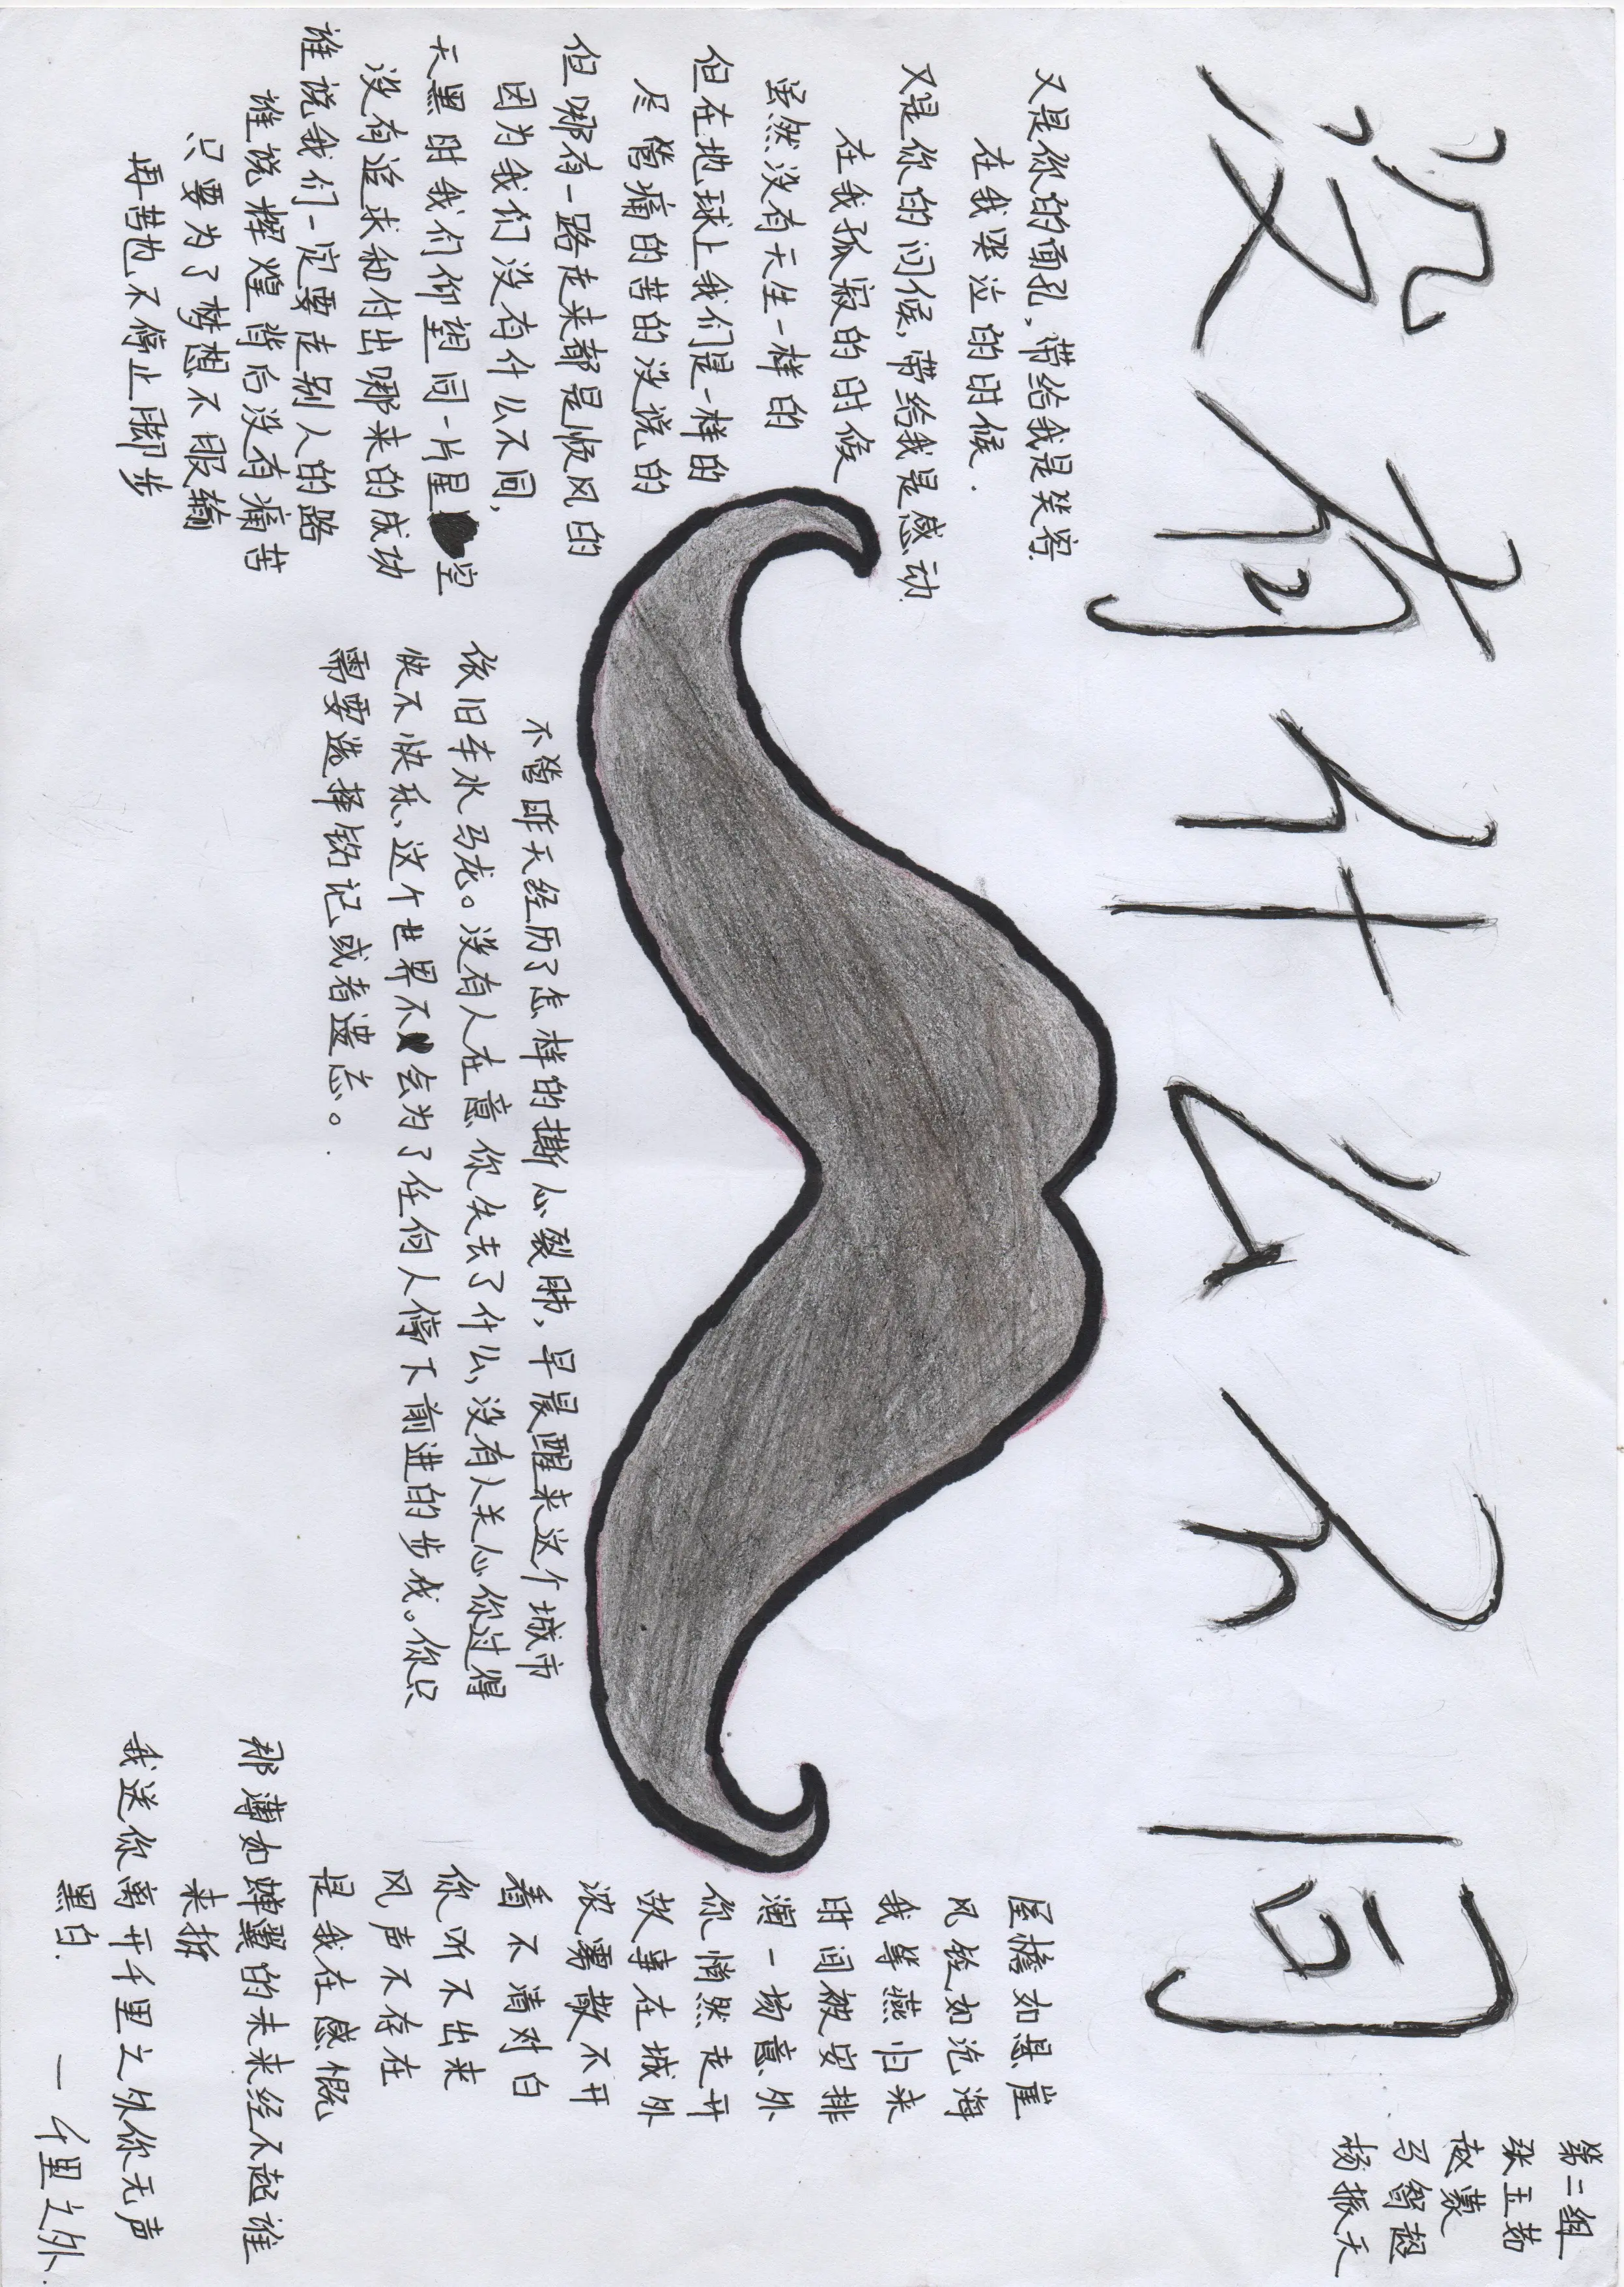 没有什么不同
第二组
张玉茹
赵蒙
马智超
杨振天
又是你的面孔,带给我是笑容
在我哭泣的时候.
又是你的问候,带给我是感动
在我孤寂的时候
虽然没有天生一样的
但在地球上我们是一样的
尽管痛的苦的没说的
但哪有一路走来都是顺风的
因为我们没有什么不同,
天黑时我们仰望同一片星空
没有追求和付出哪来的成功
谁说我们一定要走别人的路
谁说辉煌背后没有痛苦
只要为了梦想不服输
再苦也不停止脚步
不管昨天经历了怎样的撕心裂肺,早晨醒来这个城市
依旧车水马龙。没有人在意你失去了什么,没有人关心你过得
快不快乐,这个世界不会为了任何人停下前进的步伐。你只
需要选择铭记或者遗忘。
屋檐如悬崖
风铃如沧海
我等燕归来
时间被安排
澜一场意外
你悄然走开
故事在城外
浓雾散不开
看不清对白
你听不出来
风声不存在
是我在感慨
那薄如蝉翼的未来经不起谁
来拆
我送你离开千里之外你无声
黑白.
一千里之外.